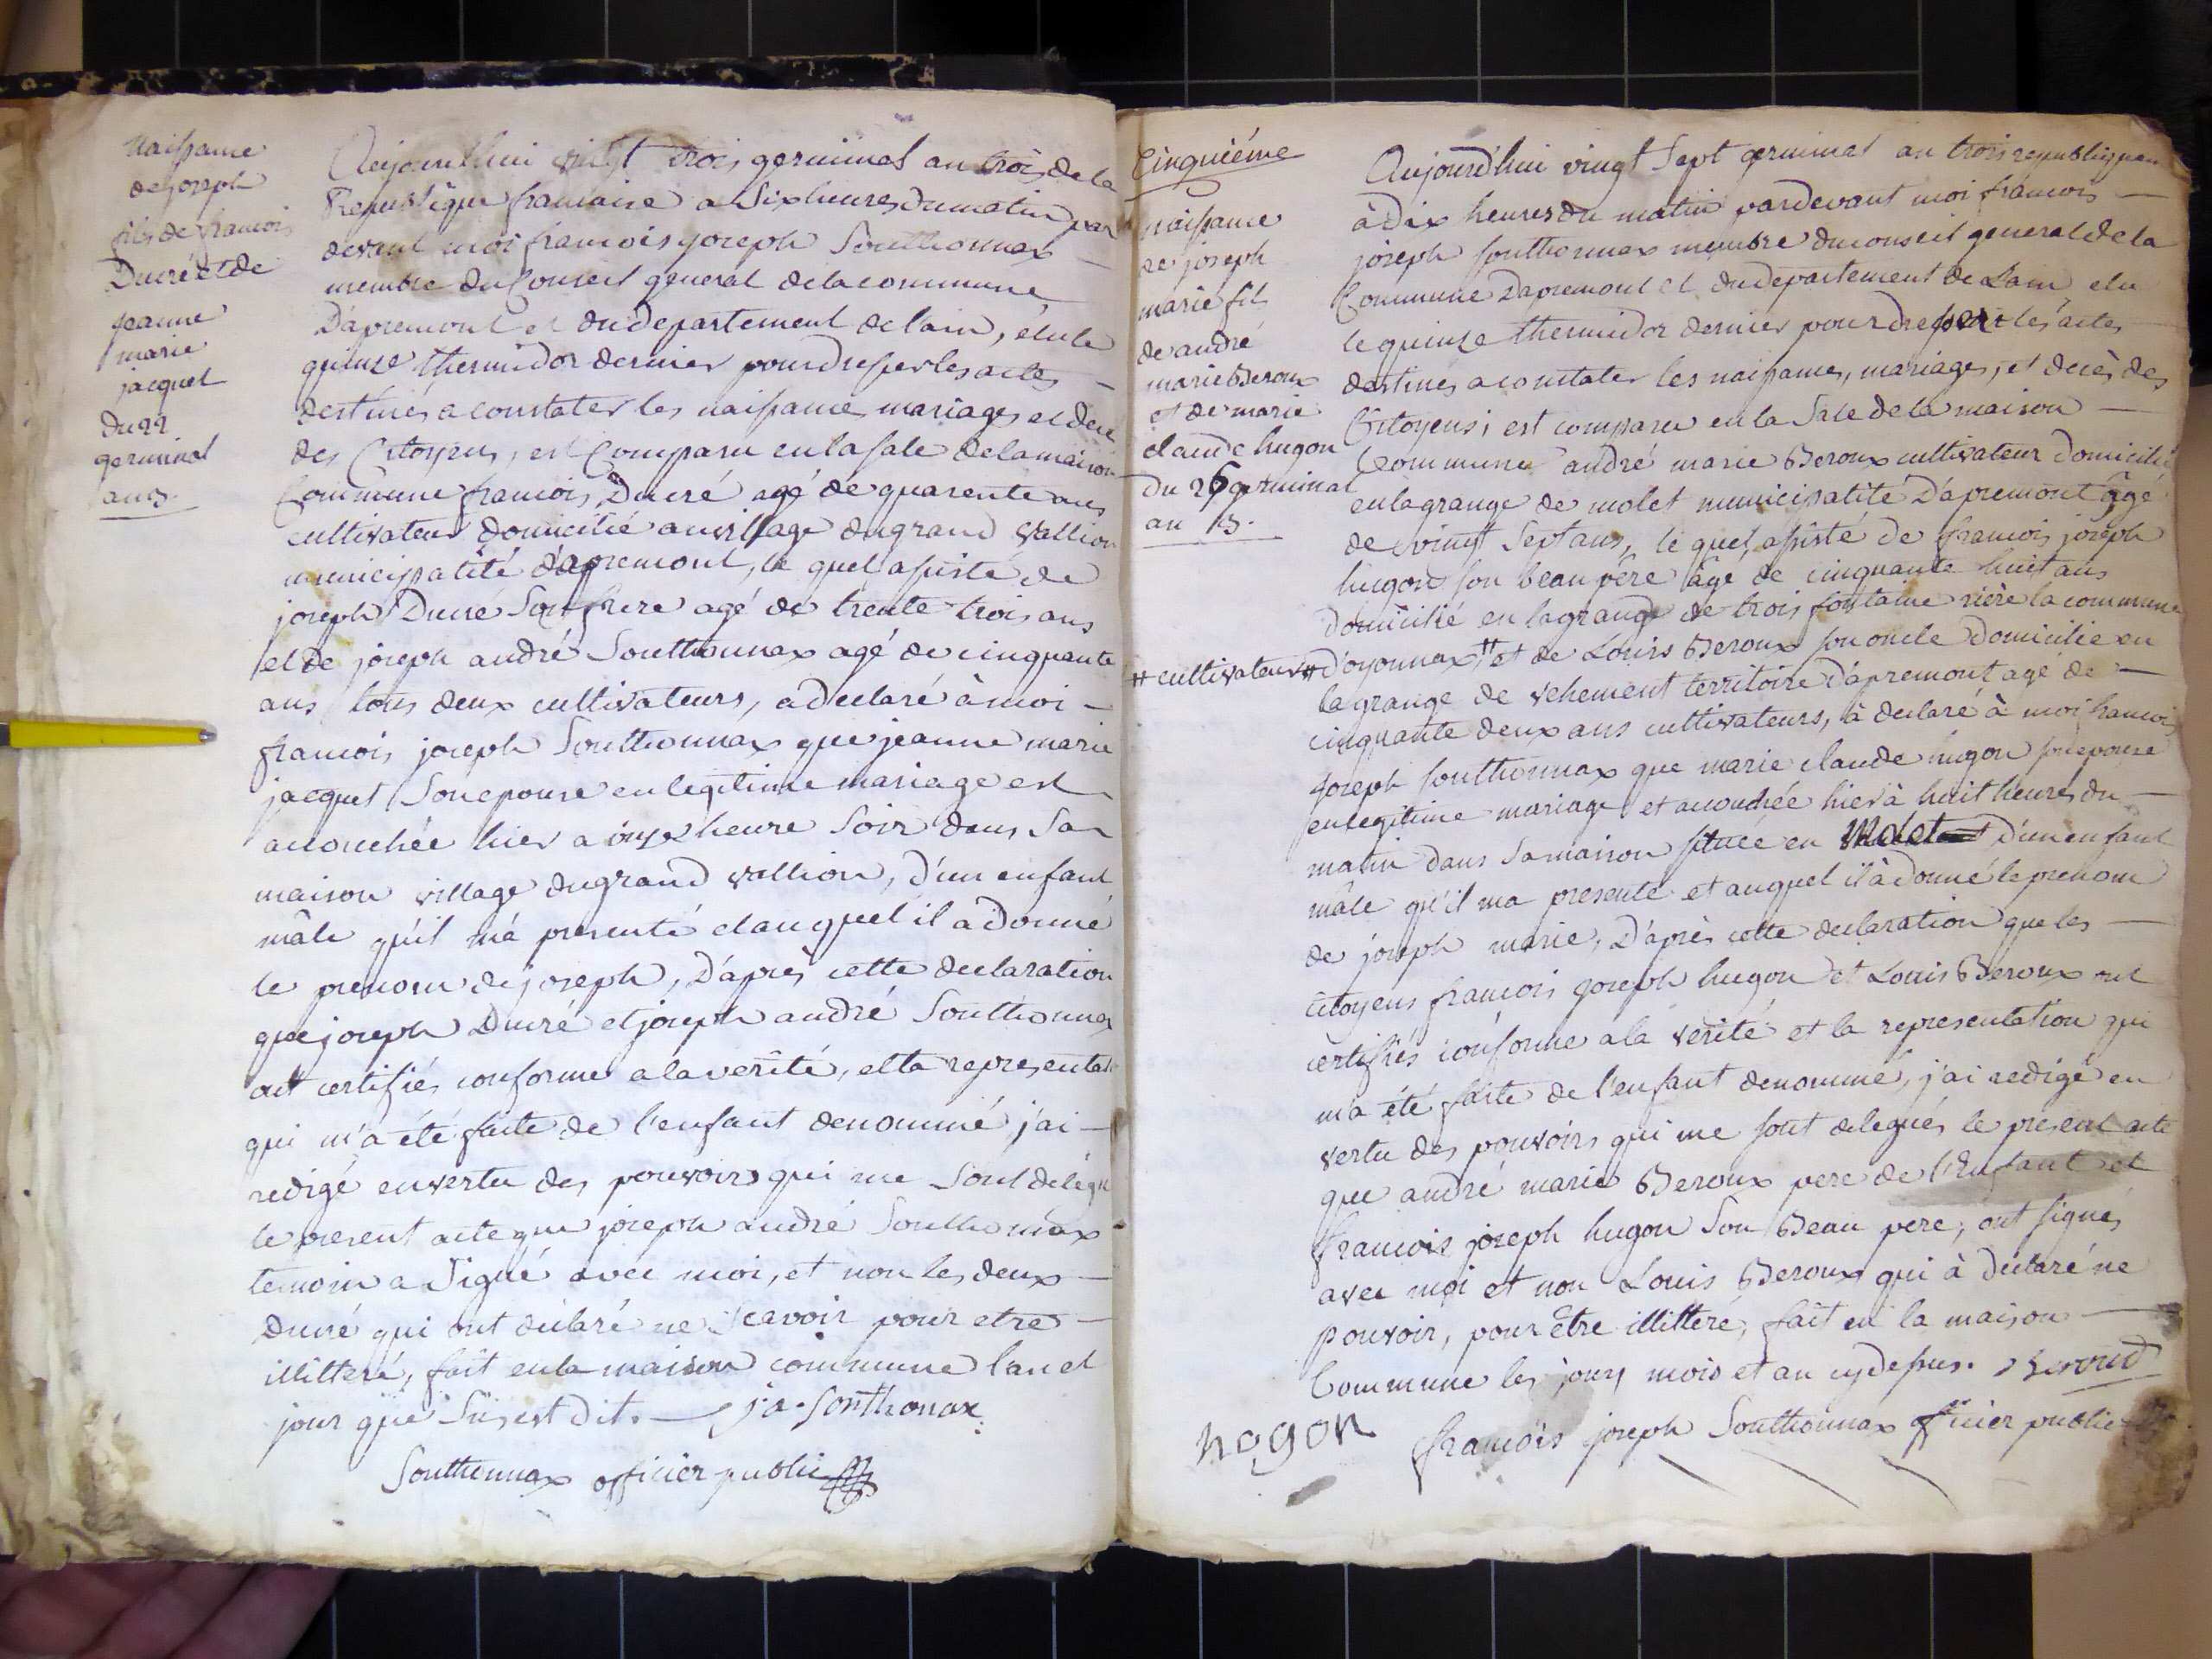 naissance
de joseph
fils de francois
Ducré et de
jeanne
marie
jacquet
du 22
germinal
an 3.
Aujourd'hui vingt trois germinal an trois de la
Republique francaise a six heures du matin par
devant moi francois joseph Sonthonnax
membre du Conseil general de la commune
D'apremont et du departement de lain, élu le
quinze thermidor dernier pour dresser les actes
destinés a constater les naissance mariages et decé
des Citoyens, est Comparu en la sale de la maison
Commune francois Ducré agé de quarente ans
cultivateur domicilié au village du grand vallion
municipatité d'apremont, le quel assisté de
joseph Ducré son frere agé de trente trois ans
et de joseph andré Sonthonnax agé de cinquante
ans tous deux cultivateurs, a declaré à moi
francois joseph Sonthonnax que jeanne marie
jacquet son epouse en legitime mariage est
accouchée hier a onze heure soir dans sa
maison village du grand vallion, d'un enfant
mâle qu'il m'a presenté et auquel il a donné
le prenom de joseph, D'après cette declaration
que joseph Ducré et joseph andré Sonthonnax
ont certifiés conforme a la verité, et la representati
qui m'a été faite de l'enfant denommé j'ai
redigé en vertu des pouvoirs qui me sont delégu
le present acte que joseph andré Sonthonnax
temoin a signé avec moi, et non les deux
Ducré qui ont déclaré ne scavoir pour etre
illitteré, fait en la maison commune l'an et
jour que sus est dit. j a. Sonthonax
Sonthonnax officier public
Cinquiéme
naissance
de joseph
marie fils
de andré
marie Beroux
et de marie
claude hugon
du 26 germinal
an 3.
Aujourd'hui vingt sept germinal an trois republiquain
à dix heures du matin pardevant moi francois
joseph sonthonnax membre du conseil general de la
Commune D'apremont et du departement de Lain elu
le quinze thermidor dernier pour dresser les actes
destinés a constater les naissances, mariages, et decès des
Citoyens; est comparu en la sale de la maison
Commune andré marie Beroux cultivateur domicilié
en la grange de molet municipatité D'apremont âgé
de vingt sept ans, le quel assisté de francois joseph
hugon son beau pére âgé de cinquante huit ans
domicilié en la grange de trois fontaine riére la commune
# cultivateur # d'oyonnax # et de Louis Beroux son oncle domicilie en
la grange de vehement territoire D'apremont agé de
cinquante deux ans cultivateurs, à declaré à moi francois
joseph sonthonnax que marie claude hugon son epouse
en legitime mariage et accouchée hier à huit heures du
matin dans sa maison située en Molet d'un enfant
mâle qu'il ma presenté et auquel il à donné le prenom
de joseph marie, D'après cette declaration que les
citoyens francois joseph hugon et Louis Beroux ont
certifiés conforme a la verité et la representation qui
m'a été faite de l'enfant denommé, j'ai redigé en
vertu des pouvoirs qui me sont delegués le present acte
que andré marie Beroux pere de l'Enfant et
francois joseph hugon son Beau pere, ont signés
avec moi et non Louis Beroux qui à déclaré ne
pouvoir, pour être illitteré, fait en la maison
Commune les jours mois et an cydessus. Beroud
hogon francois joseph Sonthonnax officier public